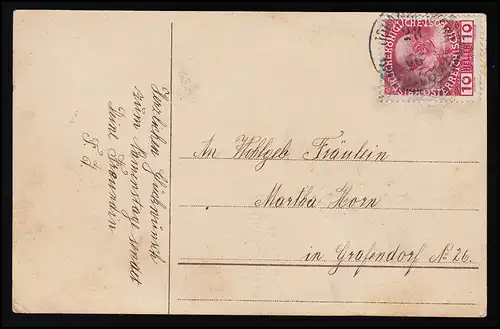 Herzlichen Glückwunsch
zum Namenstage sendet
Deine Freundin
F. J.
An Wohlgeb. Fräulein
Martha Horn
in Grafendorf No 26.
10 HELLER 10